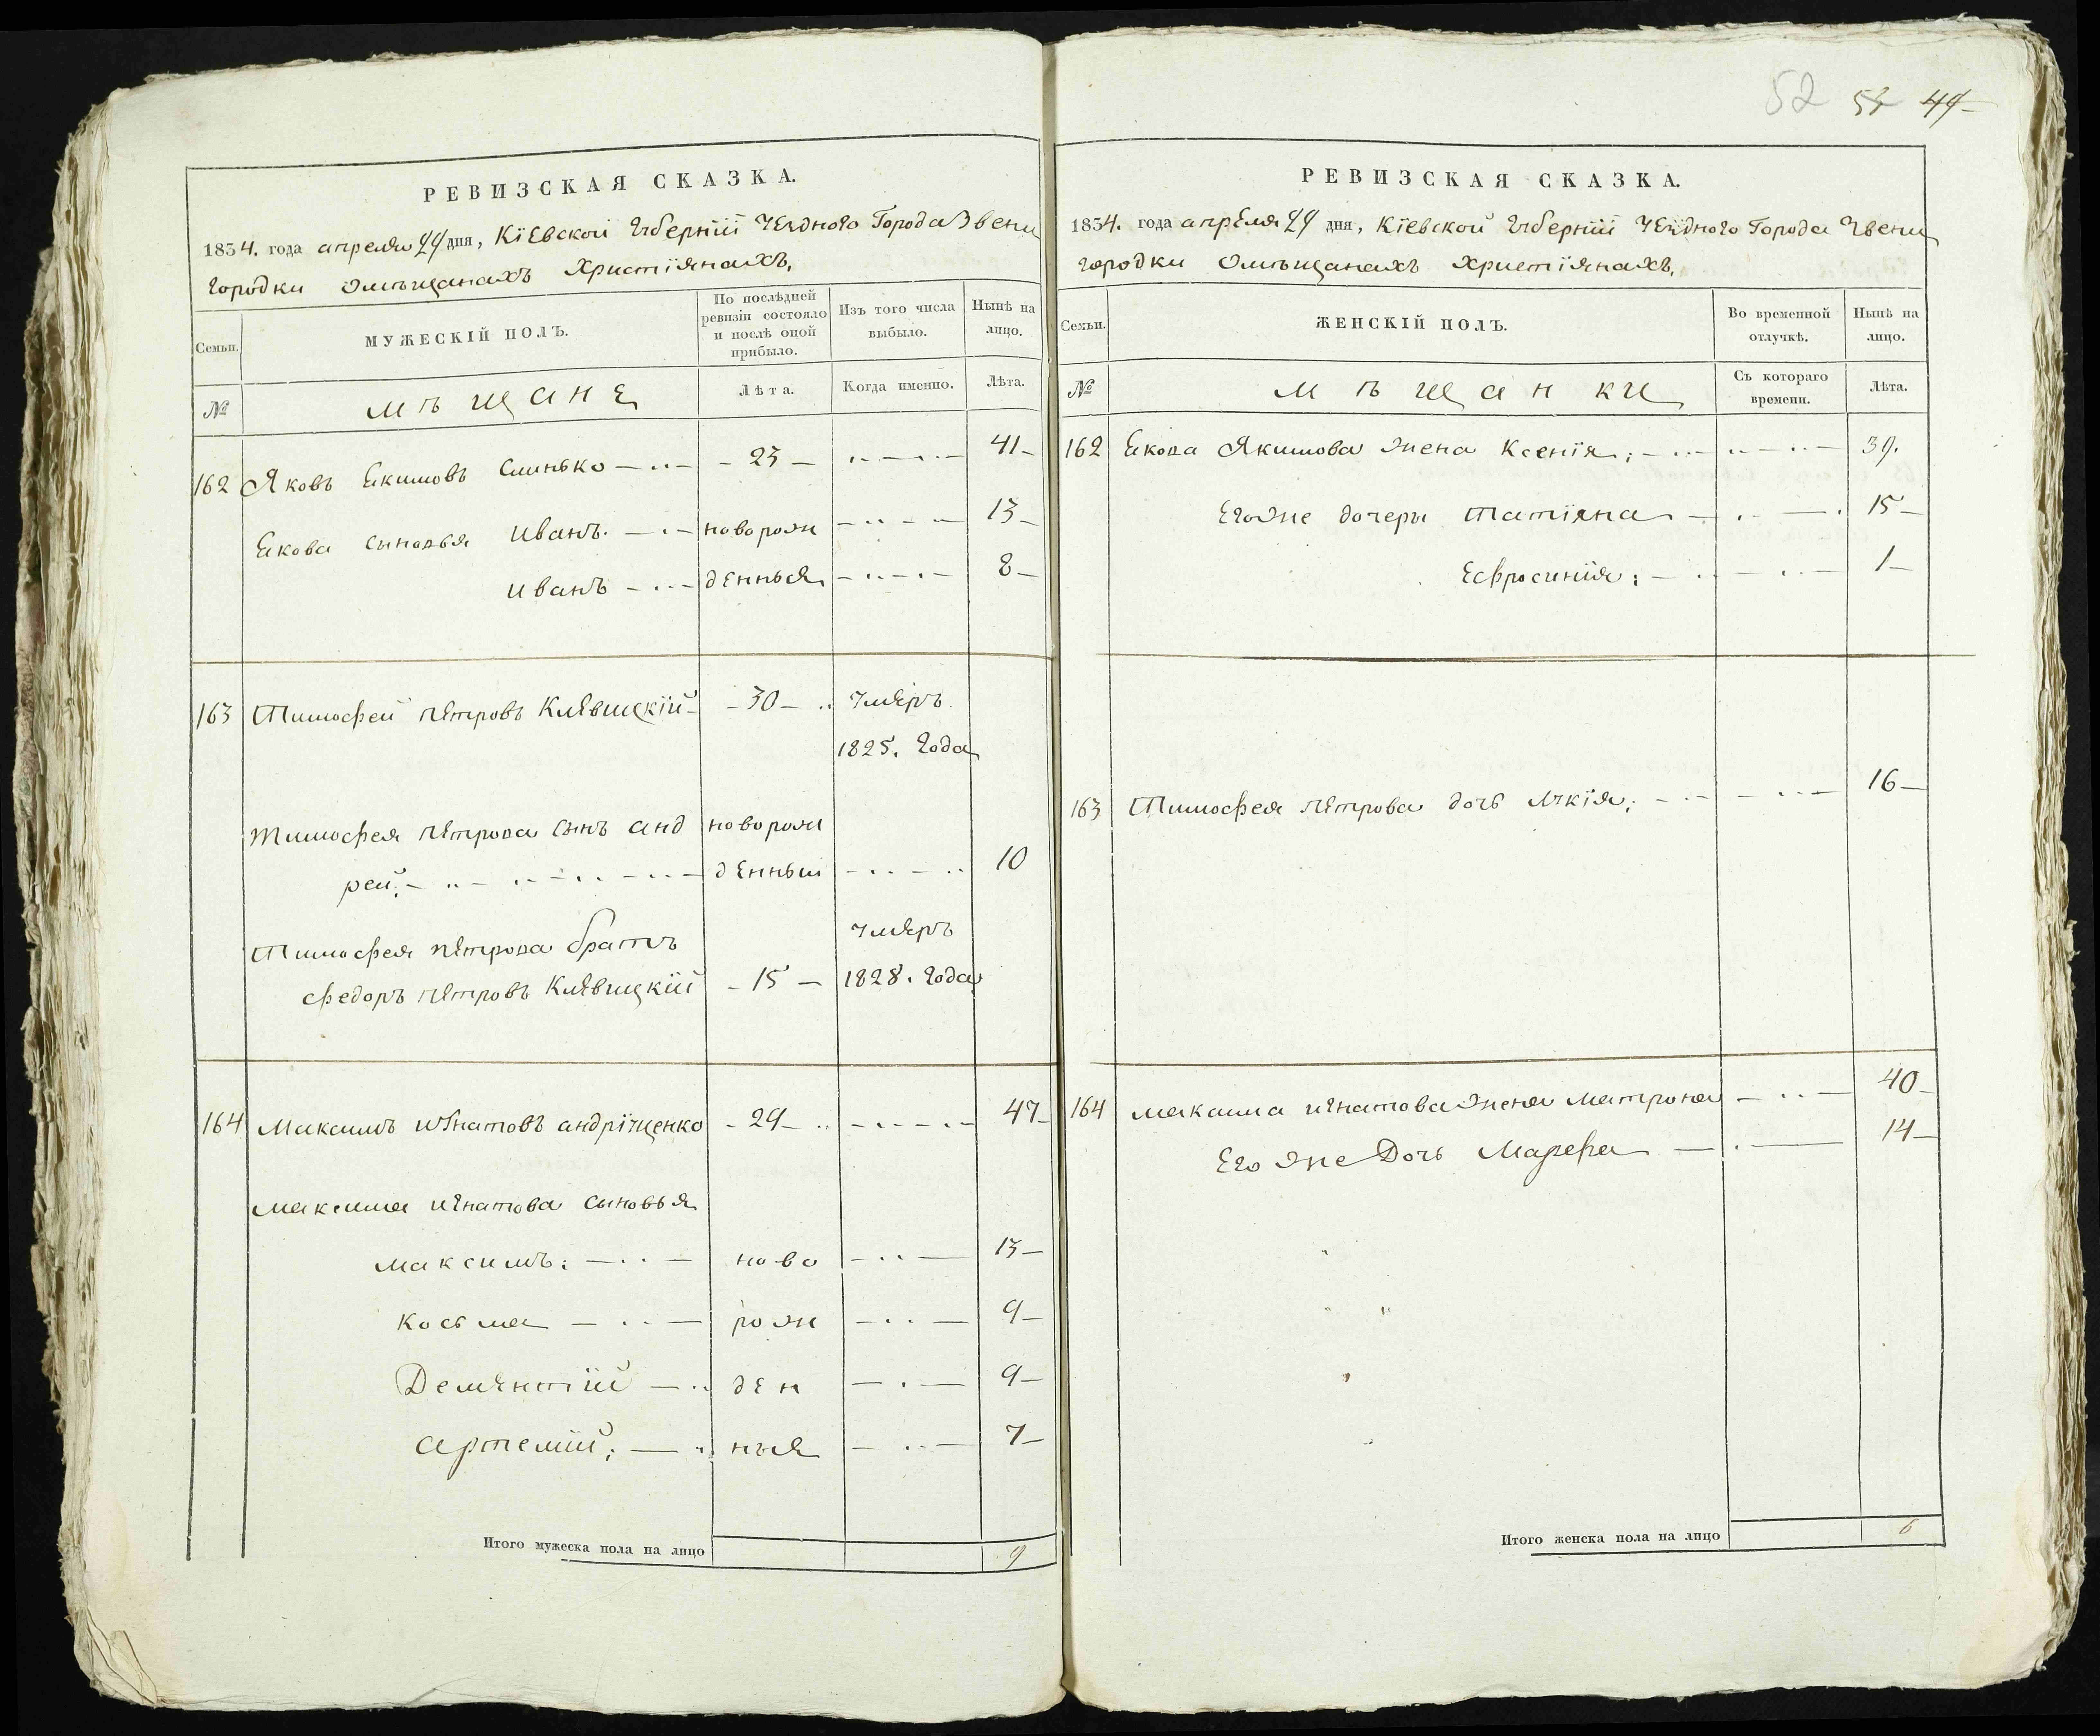 52 53 49
РЕВИЗСКАЯ СКАЗКА.
1834. года апреля 29 дня, Кіевской Губерніи Уездного Города Звени
городки Омѣщанахъ Христіянахъ,
Семьи.
МУЖЕСКІЙ ПОЛЪ.
По послѣдней ревизіи состояло и послѣ оной прибыло.
Изъ того числа выбыло.
Нынѣ на лицо.
№
Мѣщане
Лѣта.
Когда именно.
Лѣта.
162 Яковъ Екимовъ Слинько 23 41
Екова сыновья Иванъ новорож 13
Иванъ денныя 8
163 Тимофей Петровъ Клевицкій 30 умеръ
1825. года
Тимофея Петрова сынъ Анд новорож
рей; денный 10
Тимофея Петрова братъ умеръ
Федоръ Петровъ Клевицкій 15 1828. года
164 Максимъ Игнатовъ Андріущенко 29 47
Максима Игнатова сыновья
Максимъ: ново 13
Косьма рож 9
Дементій ден 9
Артемій; ныя 7
Итого мужеска пола на лицо 9
РЕВИЗСКАЯ СКАЗКА.
1834. года апреля 29 дня, Кіевской Губерніи Уезднаго Города Звени
городки Омѣщанахъ Христіянахъ,
Семьи.
ЖЕНСКІЙ ПОЛЪ.
Во временной отлучкѣ.
Нынѣ на лицо.
№
Мѣщанки
Съ котораго времени.
Лѣта.
162 Екова Якимова жена Ксенія; 39.
Егоже дочеры Татіяна 15
Ефросинія; 1
163 Тимофея Петрова дочь Лукія; 16
164 Максима Игнатова жена Матрона 40
Его же Дочь Марфа 14
Итого женска пола на лицо 6